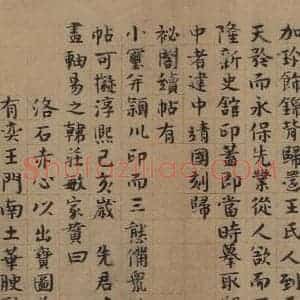 加珍飾錯有歸於王氏人到
天發而永保先業從人欲而
隆新史舘印蓄即當時摹取
中者建中靖國刻歸
祕閣續帖有
小璽并頴川印而三態備衆
帖可擬淳熙己亥歲 先君
盡軸易之韓莊敏家質曰
洛石赤心以出寶圖
有奕王門南土華腴